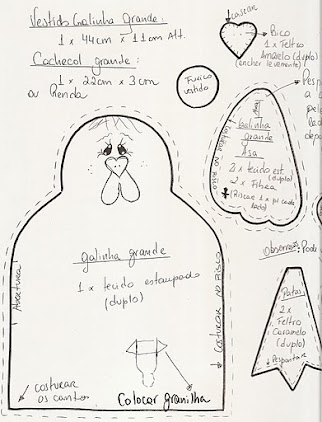 Vestido Galinha grande:
1 x 44cm x 11cm Alt.
Cachecol grande:
1 x 22cm x 3cm
ou Renda
Furico
vestido
Bico
1 x Feltro
Amarelo (duplo)
(encher levemente)
Galinha
grande
Asa
2 x tecido est
(duplo)
2 x Fibra
(Riscar 1 p/ cada
lado)
galinha grande
1 x tecido estampado
(duplo)
Abertura
Costurar no Risco
costurar
os cantos
Colocar granilha
Patas
2 x
Feltro
Caramelo
(duplo)
Pespontar